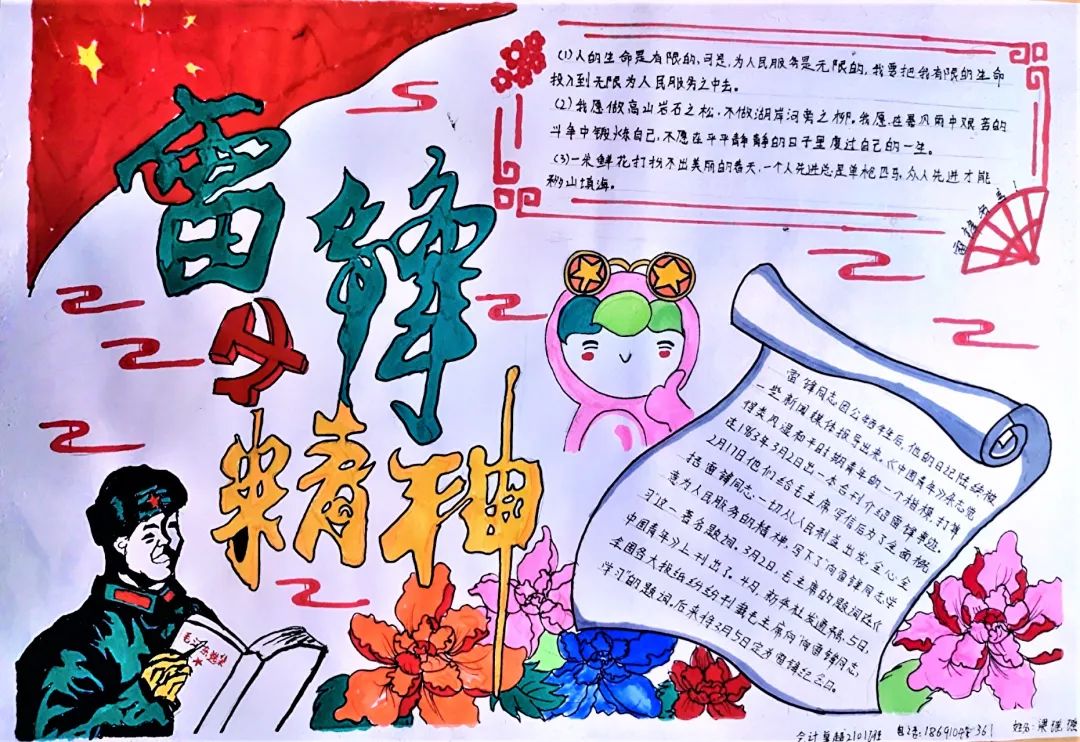 雷锋
精神
(1)人的生命是有限的,可是,为人民服务是无限的,我要把我有限的生命
投入到无限为人民服务之中去。
(2)我愿做高山岩石之松,不做湖岸河旁之柳。我愿在暴风雨中艰苦的
斗争中锻炼自己,不愿在平平静静的日子里度过自己的一生。
(3)一朵鲜花打扮不出美丽的春天,一个人先进总是单枪匹马,众人先进才能
移山填海。
雷锋名言!
雷锋同志因公牺牲后,他的日记陆续被
一些新闻媒体报导出来,《中国青年》杂志觉
得类风温和平时期青年的一个楷模,打算
在1963年3月2日出一本合刊介绍雷锋事迹。
2月17日他们给毛主席写信后为了全面概
括雷锋同志一切从人民利益出发,全心全
意为人民服务的精神,写下了向雷锋同志学
习这一著名题词。3月2日,毛主席的题词在《
中国青年》上刊出了。4日,新华社发通稿。5日,
全国各大报纸纷纷刊载毛主席向雷锋同志
学习的题词,后来将3月5日定为雷锋纪念日。
毛泽东选集
会计 2101班 电话:18691045361 姓名:梁瑶